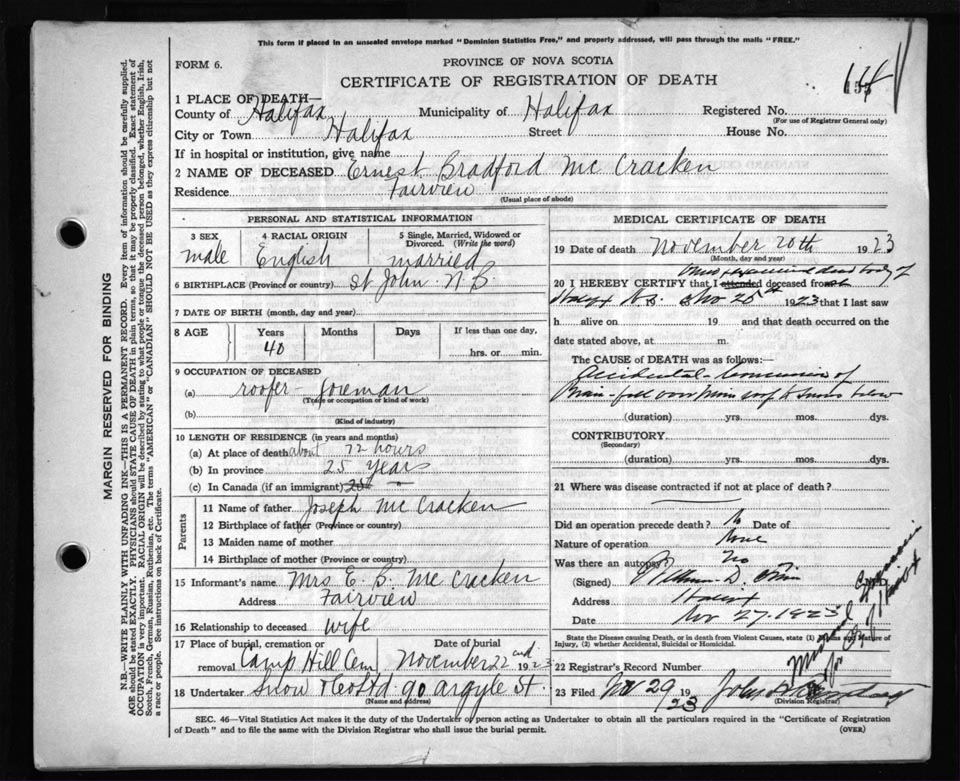 This form if placed in an unsealed envelope marked "Dominion Statistics Free," and properly addressed, will pass through the mails "FREE."
FORM 6.
PROVINCE OF NOVA SCOTIA
CERTIFICATE OF REGISTRATION OF DEATH
1 PLACE OF DEATH—
County of Halifax Municipality of Halifax Registered No.
(For use of Registrar General only)
City or Town Halifax Street House No.
If in hospital or institution, give name
2 NAME OF DECEASED Ernest Bradford McCracken
Residence Fairview
(Usual place of abode)
PERSONAL AND STATISTICAL INFORMATION
3 SEX
male
4 RACIAL ORIGIN
English
5 Single, Married, Widowed or Divorced. (Write the word)
married
6 BIRTHPLACE (Province or country) St John N.B.
7 DATE OF BIRTH (month, day and year)
8 AGE Years Months Days If less than one day,
40 hrs. or min.
9 OCCUPATION OF DECEASED
(a) roofer - foreman
(Trade or occupation or kind of work)
(b)
(Kind of industry)
10 LENGTH OF RESIDENCE (in years and months)
(a) At place of death about 72 hours
(b) In province 25 years
(c) In Canada (if an immigrant)
Parents
11 Name of father Joseph McCracken
12 Birthplace of father (Province or country)
13 Maiden name of mother
14 Birthplace of mother (Province or country)
15 Informant's name Mrs E. B. McCracken
Address Fairview
16 Relationship to deceased wife
17 Place of burial, cremation or Date of burial
removal Camp Hill Cem November 22nd 1923
18 Undertaker Snow & Co Ltd. 90 Argyle St.
(Name and address)
MEDICAL CERTIFICATE OF DEATH
19 Date of death November 20th 1923
(Month, day and year)
dead body of
20 I HEREBY CERTIFY that I attended deceased from
1923 that I last saw
h alive on 19 and that death occurred on the
date stated above, at m.
The CAUSE of DEATH was as follows:—
Accidental - Concussion of
Brain - fall
(duration) yrs. mos. dys.
CONTRIBUTORY.
(Secondary)
(duration) yrs. mos. dys.
21 Where was disease contracted if not at place of death?
Did an operation precede death? No Date of
Nature of operation None
Was there an autopsy? No
(Signed) William D.
Address Halifax
Date Nov 27. 1923
State the Disease causing Death, or in death from Violent Causes, state (1) Means and Nature of Injury, (2) whether Accidental, Suicidal or Homicidal.
22 Registrar's Record Number
23 Filed Nov 29 1923 John
(Division Registrar)
SEC. 46—Vital Statistics Act makes it the duty of the Undertaker or person acting as Undertaker to obtain all the particulars required in the "Certificate of Registration
of Death" and to file the same with the Division Registrar who shall issue the burial permit.
(OVER)
MARGIN RESERVED FOR BINDING
N.B.—WRITE PLAINLY WITH UNFADING INK—THIS IS A PERMANENT RECORD. Every item of information should be carefully supplied.
AGE should be stated EXACTLY. PHYSICIANS should STATE CAUSE OF DEATH in plain terms, so that it may be properly classified. Exact statement of
OCCUPATION is very important. RACIAL ORIGIN will be described by stating to what people or tongue the deceased person belonged, whether English, Irish,
Scotch, French, German, Russian, Ruthenian, etc. The terms "AMERICAN" or "CANADIAN" SHOULD NOT BE USED as they express citizenship but not
a race or people. See instructions on back of Certificate.